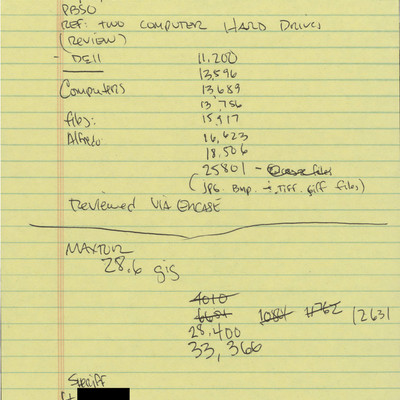 PBSO
REF: TWO COMPUTER HARD DRIVES
(REVIEW)
- DELL 11,200
13,596
Computers 13689
13756
files: 15,917
Alfredo 16,623
18,506
25801 -
(JPG. Bmp. TIFF. giff files)
Reviewed VIA ENCASE
MAXTOR
28.6 gig
4010
6681 10801 11762 12631
28,400
33,366
Sheriff